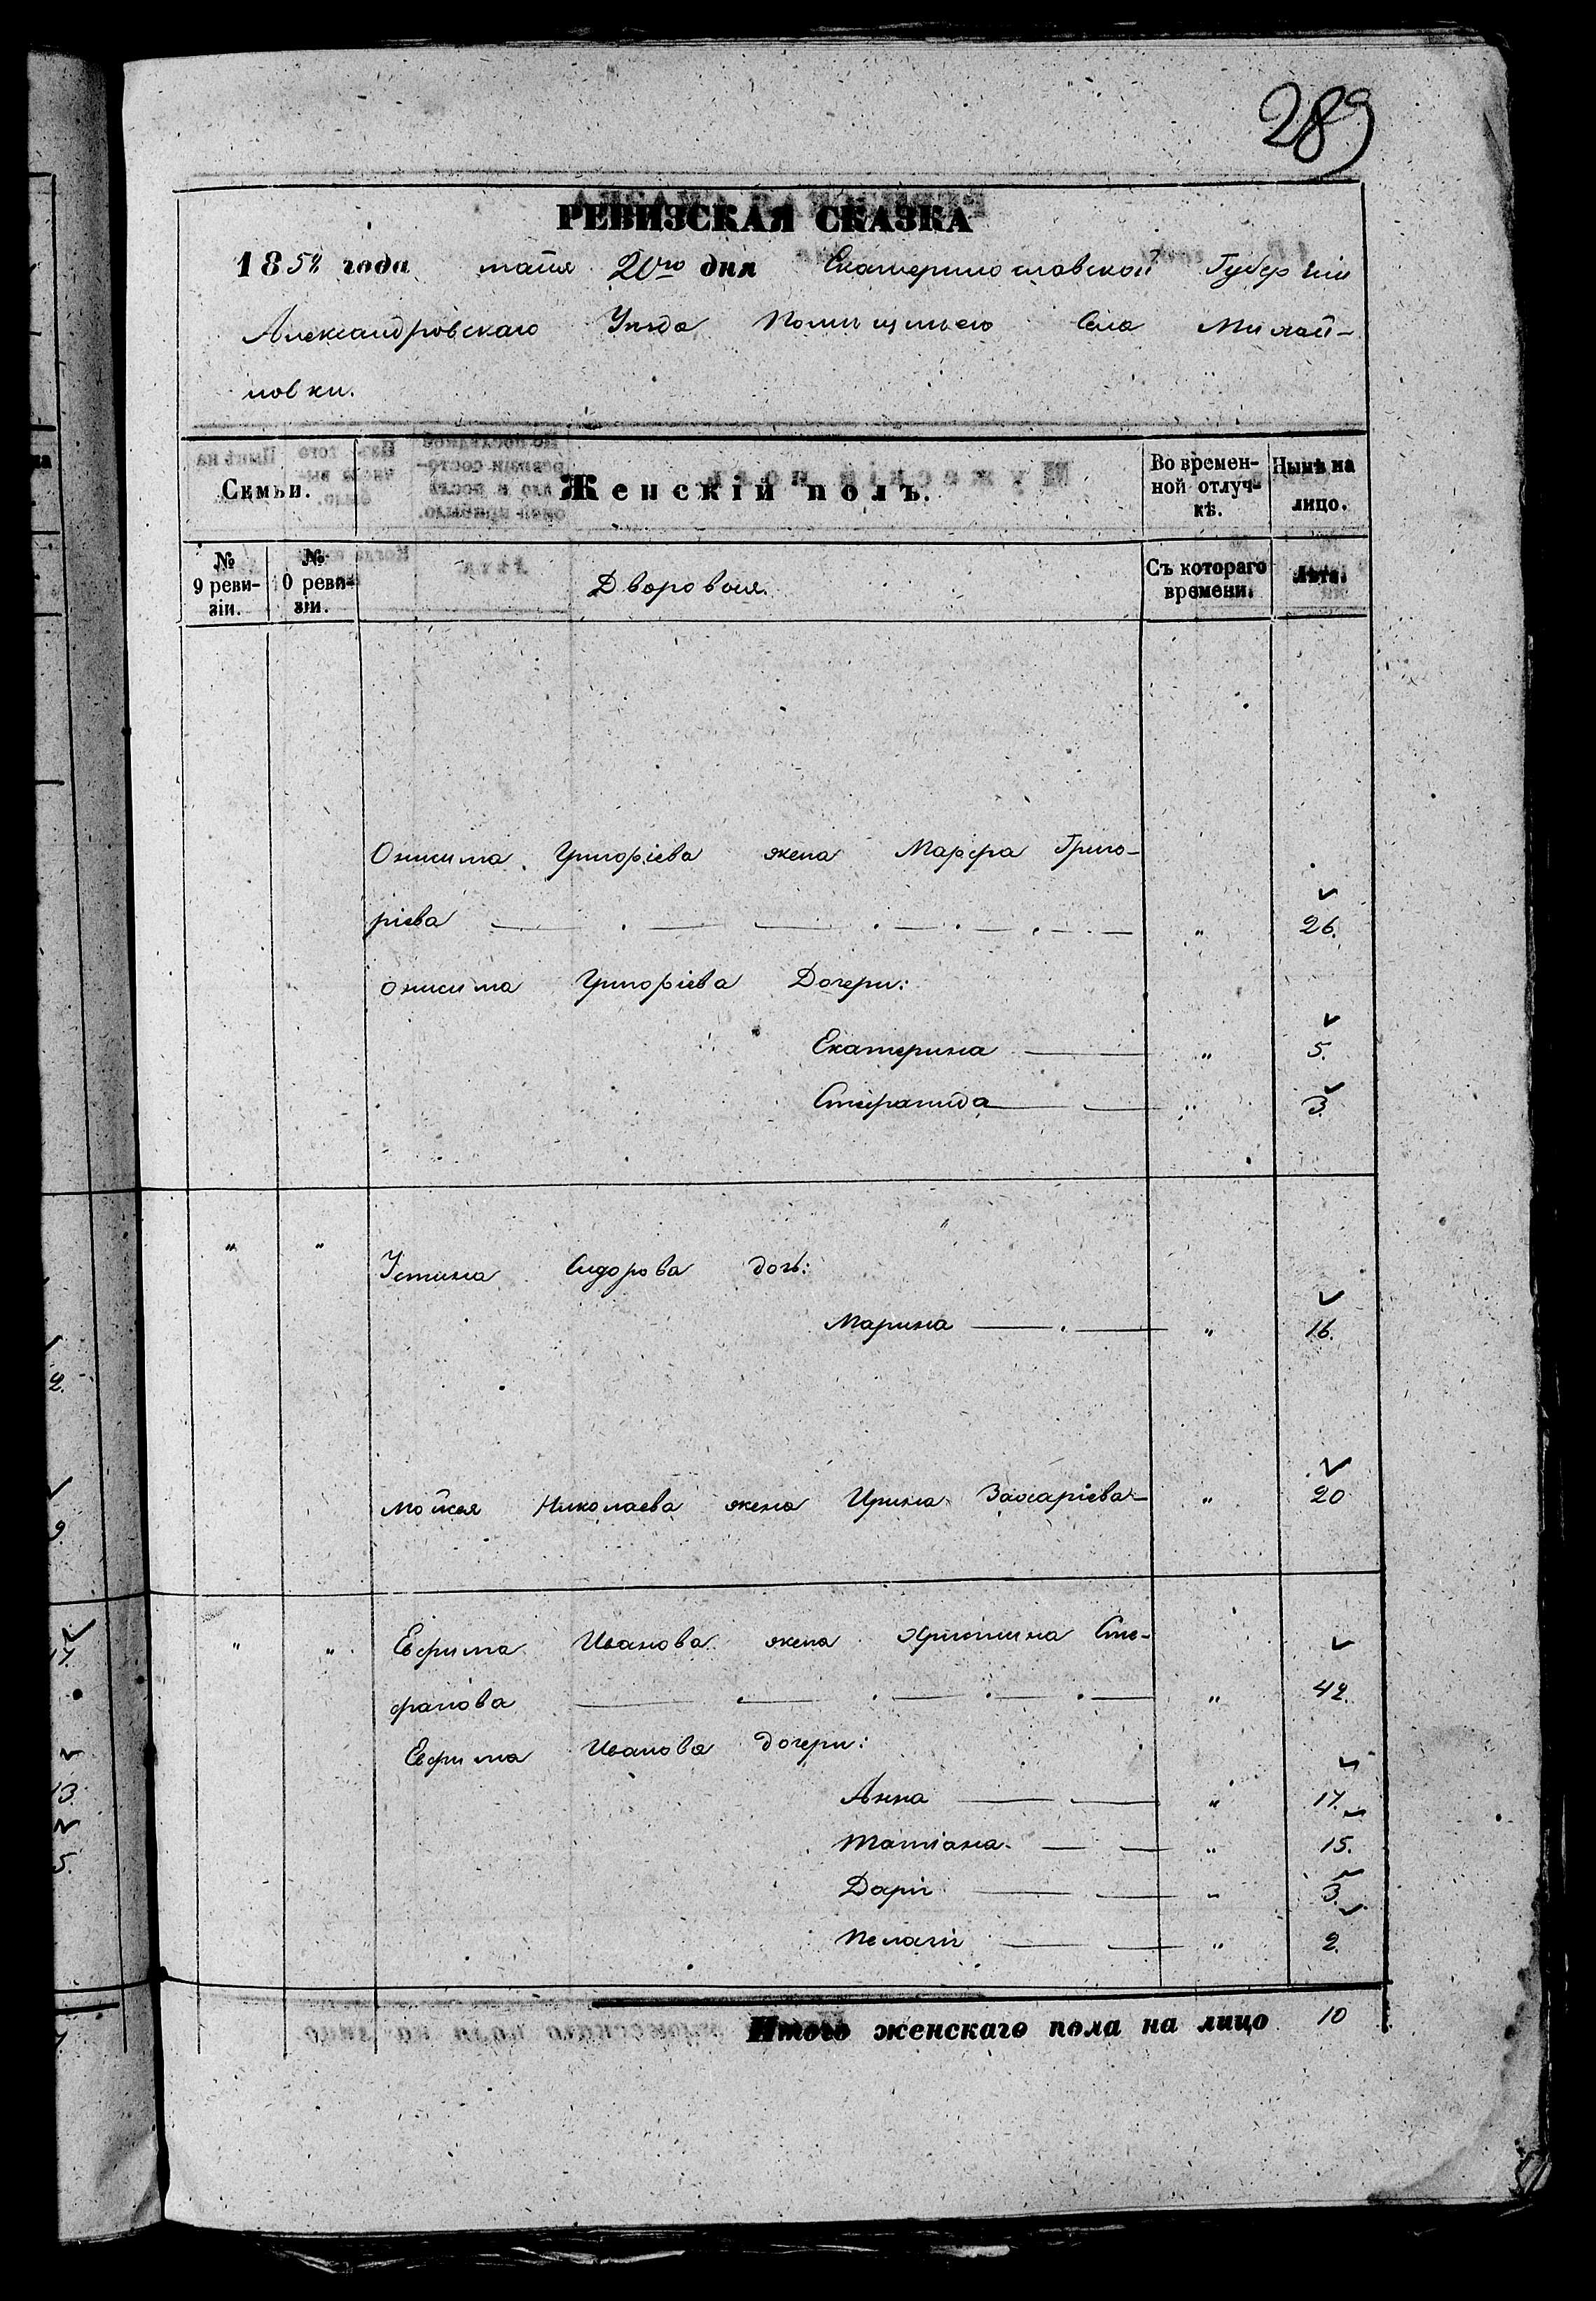 289
РЕВИЗСКАЯ СКАЗКА
1858 года маия 20го дня Екатеринославской Губерніи
Александровскаго Уѣзда Помѣщичьего Села Михай-
ловки.
Семьи.
Женскій полъ.
Во времен-
ной отлуч-
кѣ.
Нынѣ на
лицо.
№
9 реви-
зіи.
№
0 реви-
зіи.
Дворовыя.
Съ котораго
времени.
Лѣта.
Онисима Григоріева жена Марфа Григо-
ріева " 26.
Онисима Григоріева Дочери:
Екатерина " 5.
Степанида " 3.
" " Устина Сидорова дочь:
Марина " 16.
Мойсея Николаева жена Ирина Захаріева " 20
" " Ефима Иванова жена Христина Сте-
фанова " 42.
Ефима Иванова дочери:
Анна " 17.
Татіана " 15.
Дарія " 3.
Пелагія " 2.
Итого женскаго пола на лицо 10